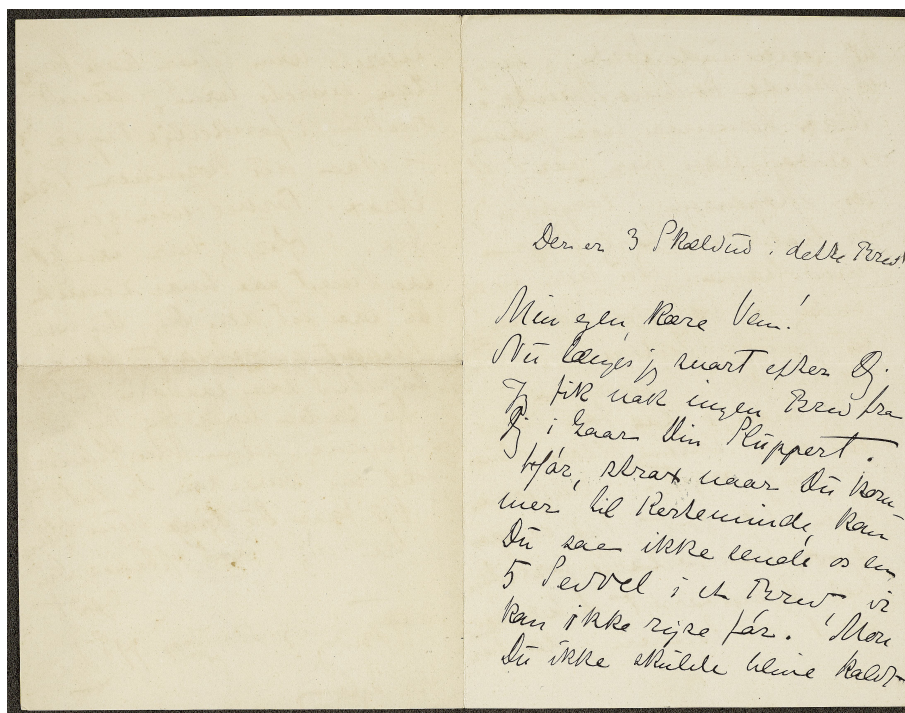 Der er 3 Skældud i dette Brev!
Min egen, kære Ven!
Nu længes jeg snart efter Dig.
Jeg fik nok ingen Brev fra
Dig i Gaar Din Sluppert.
Hør, strax naar Du kom-
mer til Kerteminde, kan
Du saa ikke sende os en
5 Seddel i et Brev, vi
kan ikke rejse før. Mon
Du ikke skulde blive kaldt